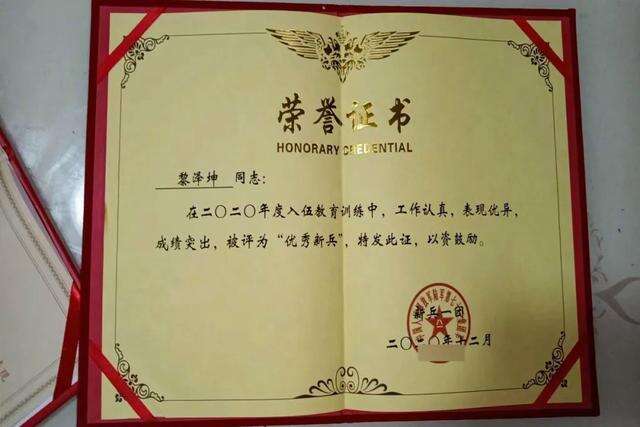 荣誉证书
HONORARY CREDENTIAL
黎泽坤 同志：
在二〇二〇年度入伍教育训练中，工作认真，表现优异，
成绩突出，被评为“优秀新兵”，特发此证，以资鼓励。
新兵一团
二〇二〇年十二月